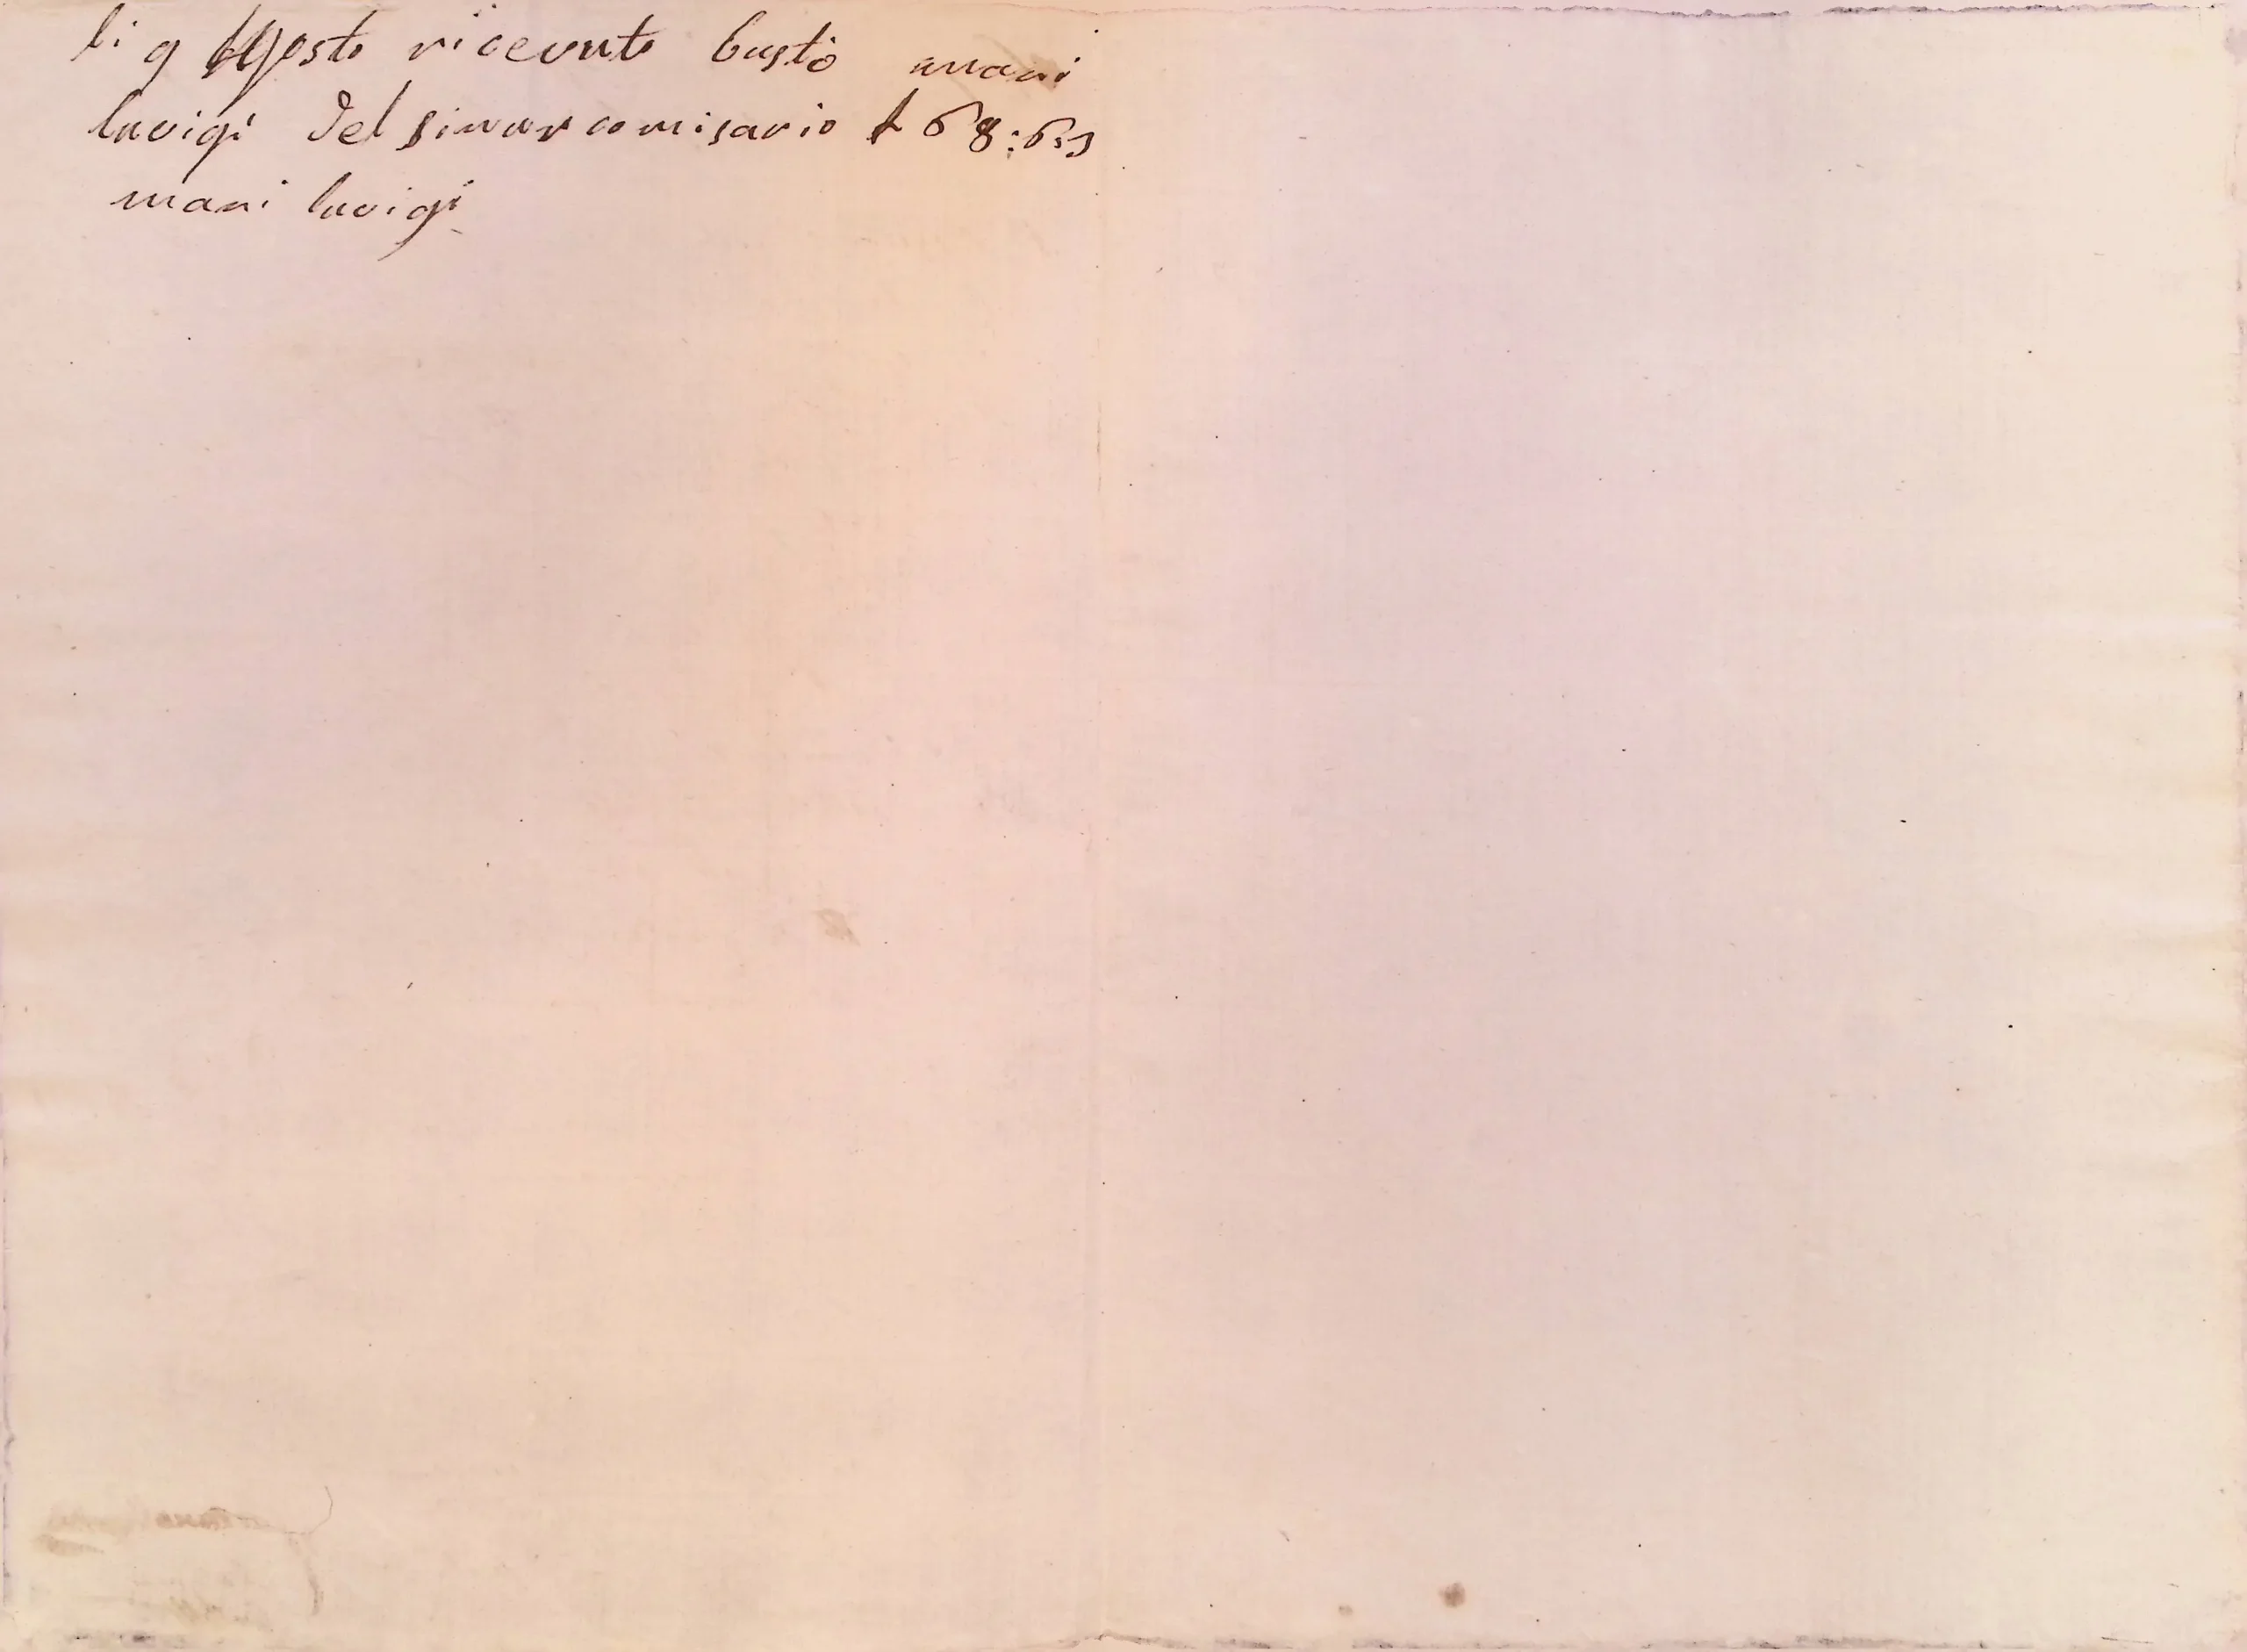 li 9 Agosto riceuuto busto mani
luvigi del sinuor comisario £ 68:63
mani luvigi